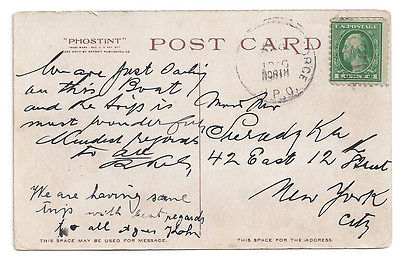 "PHOSTINT"
POST CARD
We are just Sailing
on this Boat
and the trip is
most wonderful
Kindest regards
to all
We are having some
trip with best regards
to all Agnes John
THIS SPACE MAY BE USED FOR MESSAGE.
NORTH
P.O.
U.S. POSTAGE
1 CENT 1
42 East 12th Street
New York
City
THIS SPACE IS FOR THE ADDRESS.